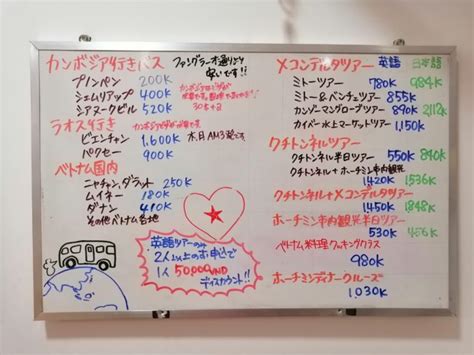 カンボジア行きバス
ファングラーオ通りより
安いです!!
プノンペン 200K
シェムリアップ 400K
シアヌークビル 520K
ラオス行き
ビエンチャン 1,600K
木、月 AM3発です。
パクセー 900K
ベトナム国内
ニャチャン、ダラット 250K
ムイネー 180K
ダナン 410K
その他ベトナム各地
英語ツアーのみ
2人以上のお申込で
1人 50,000VND
ディスカウント!!
メコンデルタツアー 英語 日本語
ミトーツアー 780K 984K
ミトー&ベンチェツアー 855K
カンザーマングローブツアー 890K 2112K
カイバー水上マーケットツアー 1,150K
クチトンネルツアー
クチトンネル半日ツアー 550K 840K
クチトンネル+ホーチミン市内観光
1420K 1536K
クチトンネル+メコンデルタツアー
1450K 1848K
ホーチミン市内観光半日ツアー
530K 456K
ベトナム料理クッキングクラス
980K
ホーチミンディナークルーズ
1030K